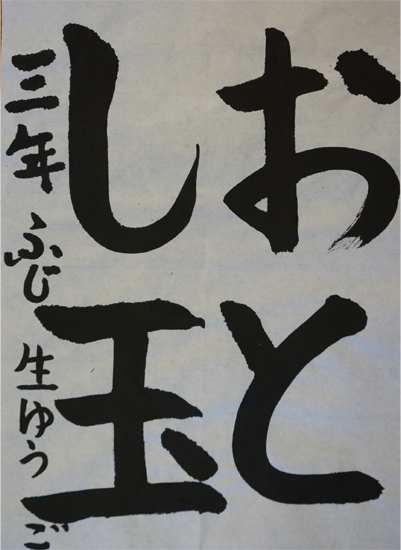 おと
し玉
三年 ふじ 生ゆうご